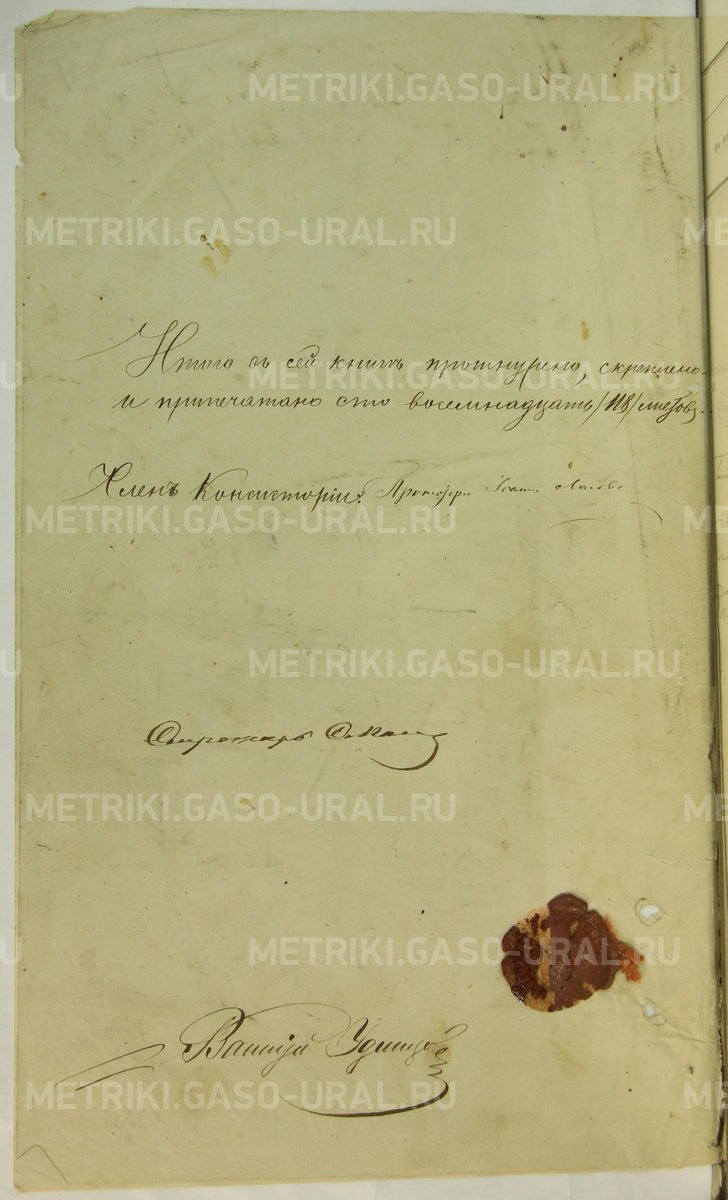 METRIKI.GASO-URAL.RU
METRIKI.GASO-URAL.RU
Итого въ сей книгѣ прошнурено, скреплено
и припечатано сто восемнадцать /118/ листовъ.
METRIKI.GASO-URAL.RU
Членъ Консисторіи: Протоіерей Іоаннъ
METRIKI.GASO-URAL.RU
METRIKI.GASO-URAL.RU
Секретарь
METRIKI.GASO-URAL.RU
METRIKI.GASO-URAL.RU
Василій Удинцовъ
METRIKI.GASO-URAL.RU